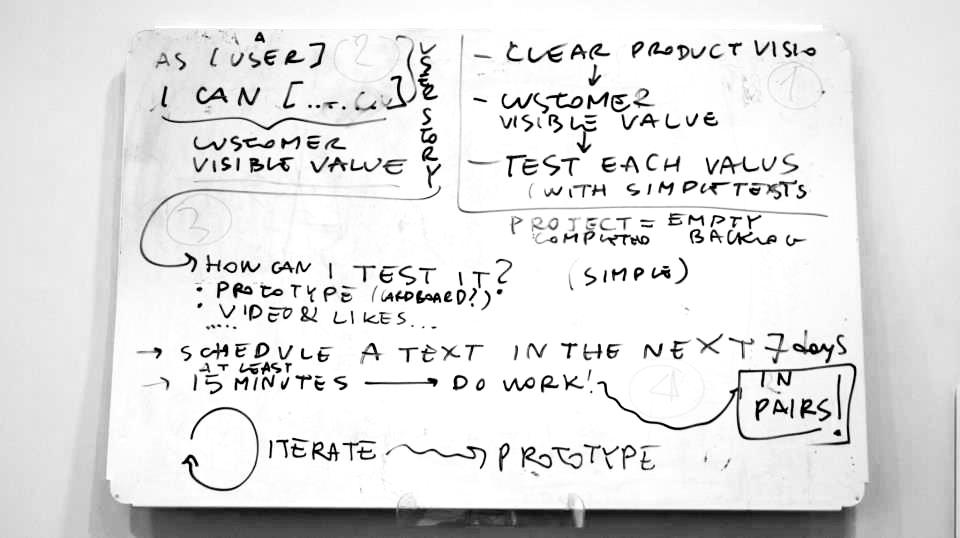 AS A [USER]
I CAN [.....]
CUSTOMER
VISIBLE VALUE
USER STORY
2
- CLEAR PRODUCT VISIO
1
- CUSTOMER
VISIBLE VALUE
- TEST EACH VALUS
(WITH SIMPLE TESTS
PROJECT = EMPTY
COMPLETED BACKLOG
(SIMPLE)
3
HOW CAN I TEST IT?
• PROTOTYPE (CARDBOARD?)
• VIDEO & LIKES...
.....
→ SCHEDULE A TEXT IN THE NEXT 7 days
AT LEAST
→ 15 MINUTES → DO WORK!
4
IN
PAIRS!
ITERATE → PROTOTYPE